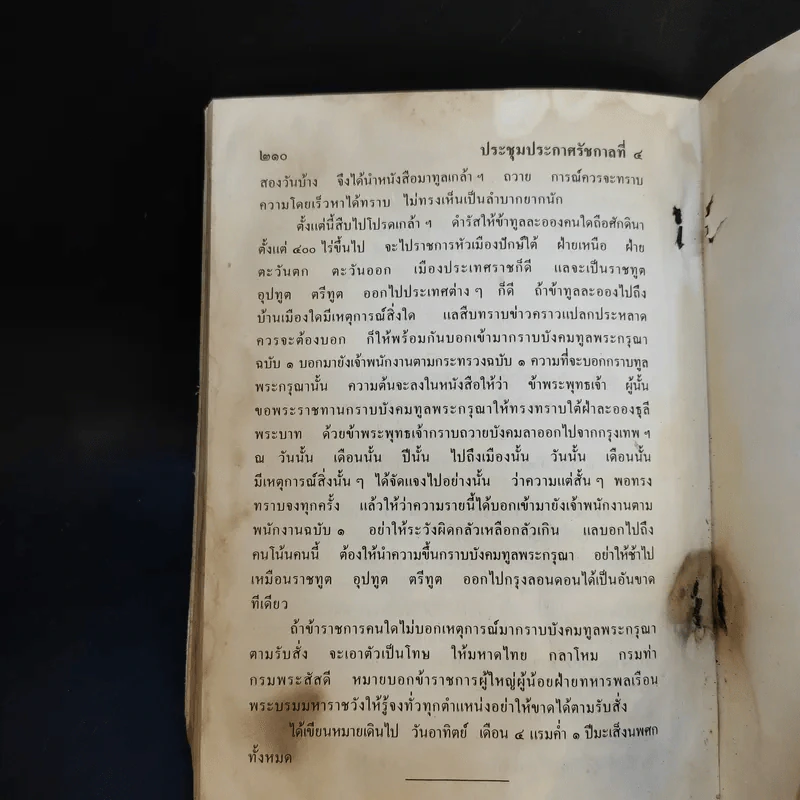 ๒๑๐ ประชุมประกาศรัชกาลที่ ๔
สองวันบ้าง จึงได้นำหนังสือมาทูลเกล้า ฯ ถวาย การณ์ควรจะทราบ
ความโดยเร็วหาได้ทราบ ไม่ทรงเห็นเป็นลำบากยากนัก
ตั้งแต่นี้สืบไปโปรดเกล้า ฯ ดำรัสให้ข้าทูลละอองคนใดถือศักดินา
ตั้งแต่ ๔๐๐ ไร่ขึ้นไป จะไปราชการหัวเมืองปักษ์ใต้ ฝ่ายเหนือ ฝ่าย
ตะวันตก ตะวันออก เมืองประเทศราชก็ดี แลจะเป็นราชทูต
อุปทูต ตรีทูต ออกไปประเทศต่าง ๆ ก็ดี ถ้าข้าทูลละอองไปถึง
บ้านเมืองใดมีเหตุการณ์สิ่งใด แลสืบทราบข่าวคราวแปลกประหลาด
ควรจะต้องบอก ก็ให้พร้อมกันบอกเข้ามากราบบังคมทูลพระกรุณา
ฉบับ ๑ บอกมายังเจ้าพนักงานตามกระทรวงฉบับ ๑ ความที่จะบอกกราบทูล
พระกรุณานั้น ความต้นจะลงในหนังสือให้ว่า ข้าพระพุทธเจ้า ผู้นั้น
ขอพระราชทานกราบบังคมทูลพระกรุณาให้ทรงทราบใต้ฝ่าละอองธุลี
พระบาท ด้วยข้าพระพุทธเจ้ากราบถวายบังคมลาออกไปจากกรุงเทพ ฯ
ณ วันนั้น เดือนนั้น ปีนั้น ไปถึงเมืองนั้น วันนั้น เดือนนั้น
มีเหตุการณ์สิ่งนั้น ๆ ได้จัดแจงไปอย่างนั้น ว่าความแต่สั้น ๆ พอทรง
ทราบจงทุกครั้ง แล้วให้ว่าความรายนี้ได้บอกเข้ามายังเจ้าพนักงานตาม
พนักงานฉบับ ๑ อย่าให้ระวังผิดกลัวเหลือกลัวเกิน แลบอกไปถึง
คนโน้นคนนี้ ต้องให้นำความขึ้นกราบบังคมทูลพระกรุณา อย่าให้ช้าไป
เหมือนราชทูต อุปทูต ตรีทูต ออกไปกรุงลอนดอนได้เป็นอันขาด
ทีเดียว
ถ้าข้าราชการคนใดไม่บอกเหตุการณ์มากราบบังคมทูลพระกรุณา
ตามรับสั่ง จะเอาตัวเป็นโทษ ให้มหาดไทย กลาโหม กรมท่า
กรมพระสัสดี หมายบอกข้าราชการผู้ใหญ่ผู้น้อยฝ่ายทหารพลเรือน
พระบรมมหาราชวังให้รู้จงทั่วทุกตำแหน่งอย่าให้ขาดได้ตามรับสั่ง
ได้เขียนหมายเดินไป วันอาทิตย์ เดือน ๔ แรมค่ำ ๑ ปีมะเส็งนพศก
ทั้งหมด